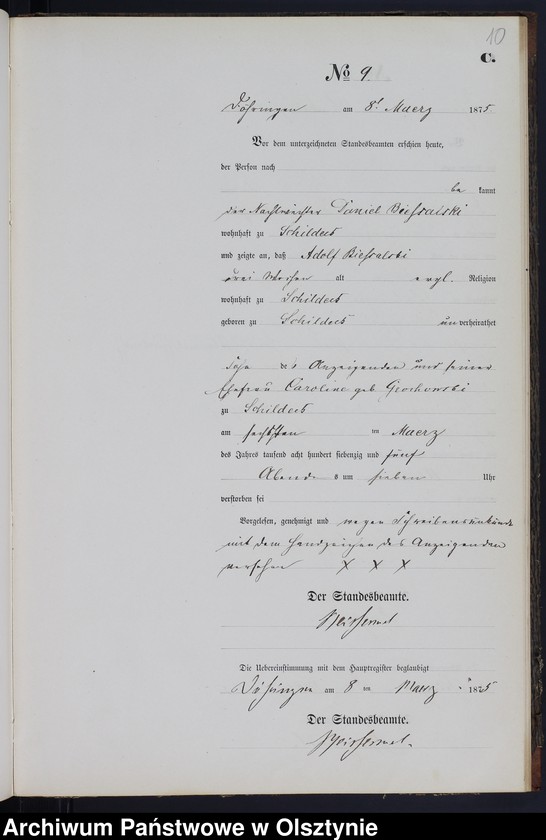 10
C.
No 9.
Döhringen am 8t Maerz 1875.
Vor dem unterzeichneten Standesbeamten erschien heute,
der Person nach
be kannt
der Nachtwächter Daniel Biessalski
wohnhaft zu Schildeck
und zeigte an, daß Adolf Biessalski
drei Wochen alt evgl. Religion
wohnhaft zu Schildeck
geboren zu Schildeck unverheirathet
Sohn des Anzeigenden und seiner
Ehefrau Caroline geb Grochowski
zu Schildeck
am sechsten im Maerz
des Jahres tausend acht hundert siebenzig und fünf
Abends um sieben Uhr
verstorben sei
Vorgelesen, genehmigt und wegen Schreibensunkunde
mit dem Handzeichen des Anzeigenden
versehen X X X
Der Standesbeamte.
Die Uebereinstimmung mit dem Hauptregister beglaubigt
Döhringen am 8 ten Maerz 1875
Der Standesbeamte.
Archiwum Państwowe w Olsztynie